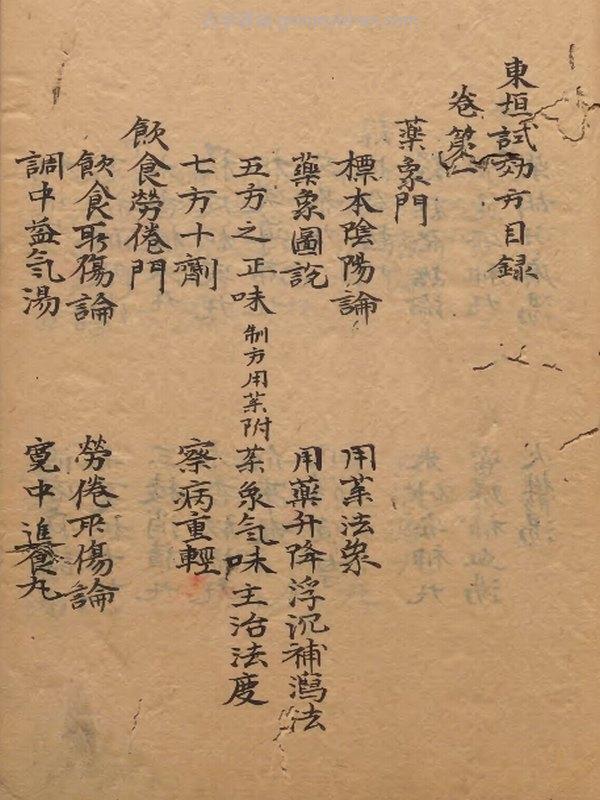 東垣試効方目録
卷第一
藥象門
標本陰陽論 用茱法象
藥象圖說 用藥升降浮沉補瀉法
五方之正味 制方用茱附 茱象氣味主治法度
七方十劑 察病重輕
飲食勞倦門
飲食所傷論 勞倦所傷論
調中益氣湯 寬中進食丸